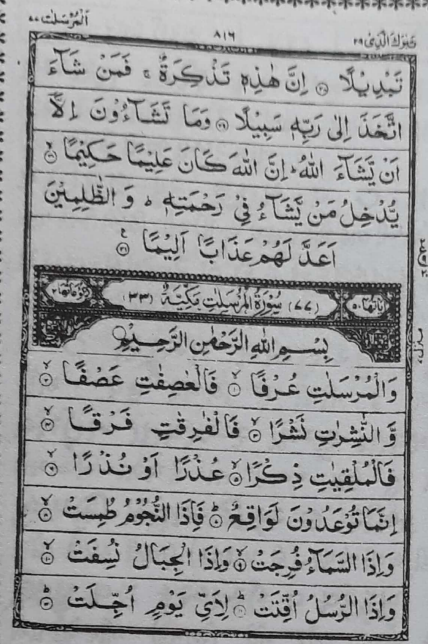 المرسلت ٧٧ ٨١٦ تبٰرك الذی ٢٩
تَبْدِيْلًا ۝٢٨ اِنَّ هٰذِهٖ تَذْكِرَةٌ ۚ فَمَنْ شَآءَ
اتَّخَذَ اِلٰى رَبِّهٖ سَبِيْلًا ۝٢٩ وَمَا تَشَآءُوْنَ اِلَّاۤ
اَنْ يَّشَآءَ اللّٰهُ ؕ اِنَّ اللّٰهَ كَانَ عَلِيْمًا حَكِيْمًا ۝٣٠
يُّدْخِلُ مَنْ يَّشَآءُ فِيْ رَحْمَتِهٖ ؕ وَ الظّٰلِمِيْنَ
اَعَدَّ لَهُمْ عَذَابًا اَلِيْمًا ۝٣١
اٰياتها ٥٠ (٧٧) سُوْرَةُ الْمُرْسَلٰتِ مَكِّيَّةٌ (٣٣) ركوعاتها ٢
بِسْمِ اللّٰهِ الرَّحْمٰنِ الرَّحِيْمِ
وَالْمُرْسَلٰتِ عُرْفًا ۝١ فَالْعٰصِفٰتِ عَصْفًا ۝٢
وَّ النّٰشِرٰتِ نَشْرًا ۝٣ فَالْفٰرِقٰتِ فَرْقًا ۝٤
فَالْمُلْقِيٰتِ ذِكْرًا ۝٥ عُذْرًا اَوْ نُذْرًا ۝٦
اِنَّمَا تُوْعَدُوْنَ لَوَاقِعٌ ۝٧ فَاِذَا النُّجُوْمُ طُمِسَتْ ۝٨
وَاِذَا السَّمَآءُ فُرِجَتْ ۝٩ وَاِذَا الْجِبَالُ نُسِفَتْ ۝١٠
وَاِذَا الرُّسُلُ اُقِّتَتْ ۝١١ لِاَيِّ يَوْمٍ اُجِّلَتْ ۝١٢